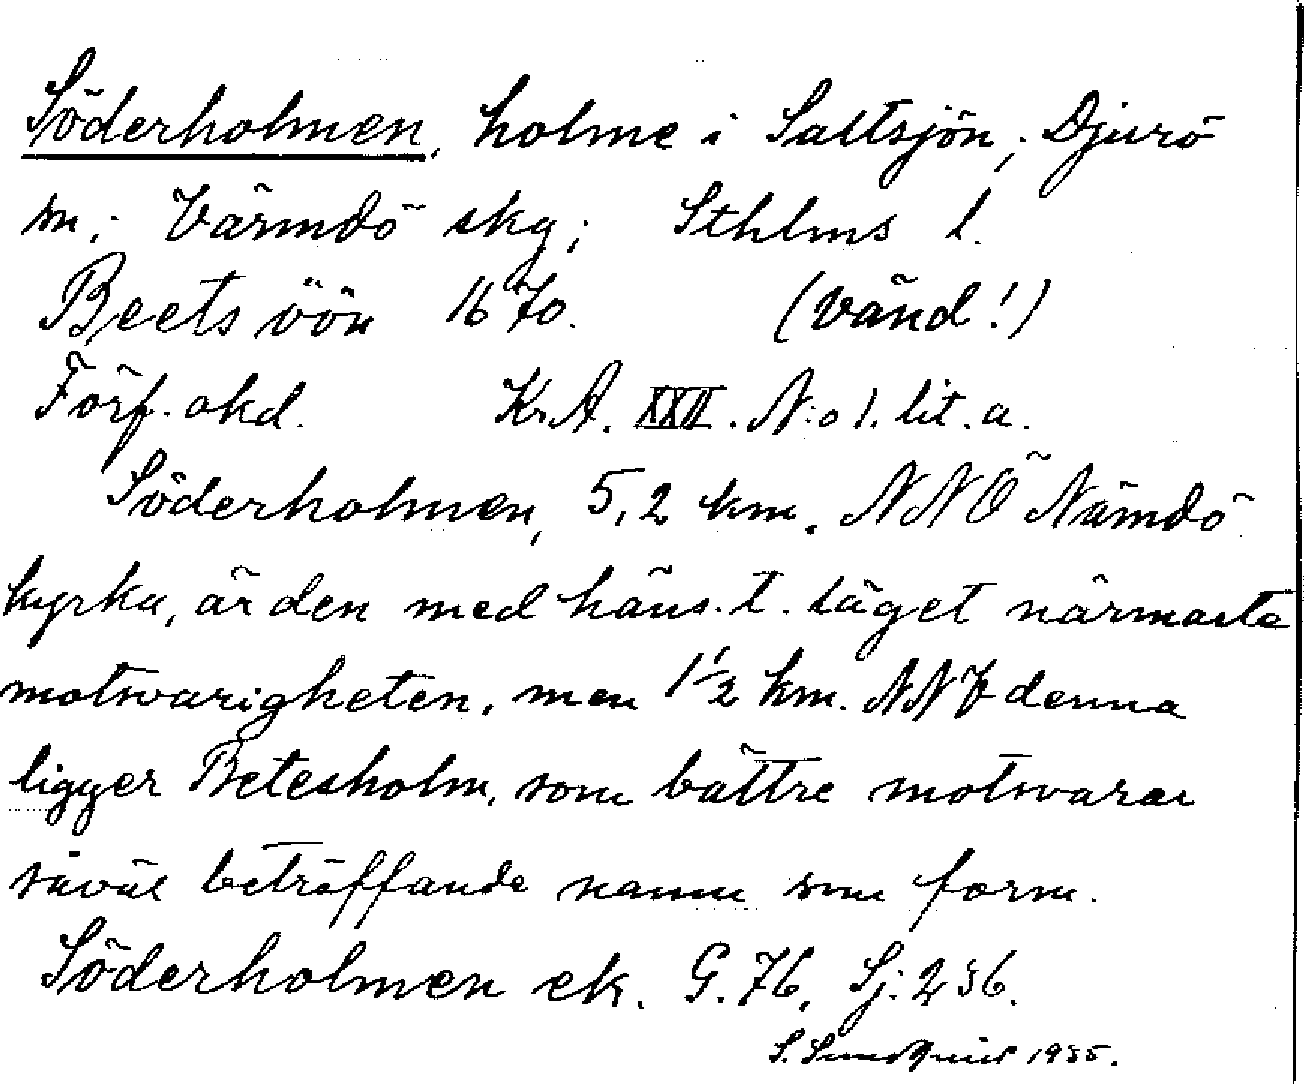 Söderholmen, holme i Saltsjön; Djurö
sn; Värmdö skg; Sthlms l.
Beets öön 1670. (Vänd!)
Förf. okd. Kr.A. XXII. N:o 1. lit. a.
Söderholmen, 5,2 km. NNÖ Nämdö
kyrka, är den med häns. t. läget närmaste
motsvarigheten, men 1½ km. NNV denna
ligger Betesholm, som bättre motsvarar
såväl beträffande namn som form.
Söderholmen ek. G. 76, Sj: 236.
S. 1935.